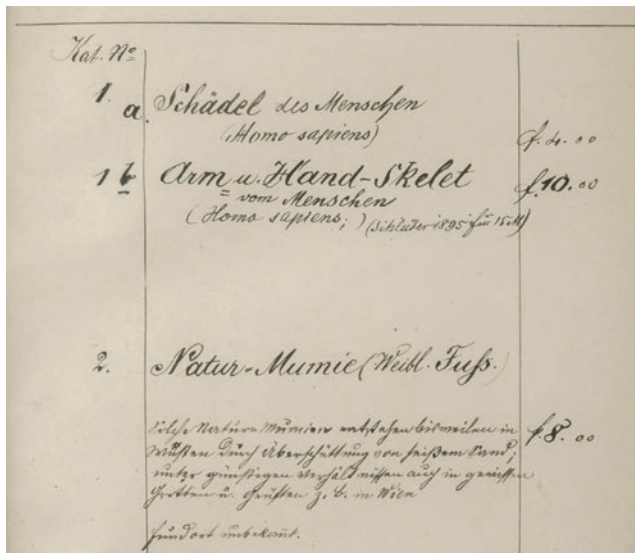 Kat. Nº
1. a. Schädel des Menschen
(Homo sapiens)
f. 4. 00
1 b Arm u. Hand-Skelet
f. 10. 00
vom Menschen
(Homo sapiens; ) (Schlüter 1895 für 15 M)
2. Natur-Mumie (Weibl. Fuss.)
Solche Natur-Mumien entstehen bisweilen in
f. 8. 00
Wüsten durch Überschüttung von heißem Sand;
unter günstigen Verhältnissen auch in gewissen
Grotten u. Grüften z. B. in Wien
Fundort unbekannt.